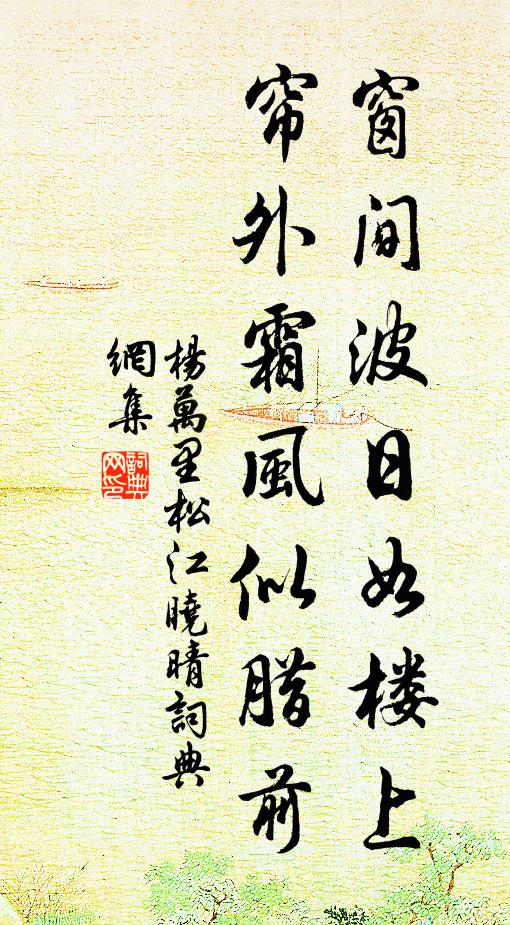 窗间波日如楼上
帘外霜風似腊前
楊萬里松江曉晴詞典
網集
詞典
网印